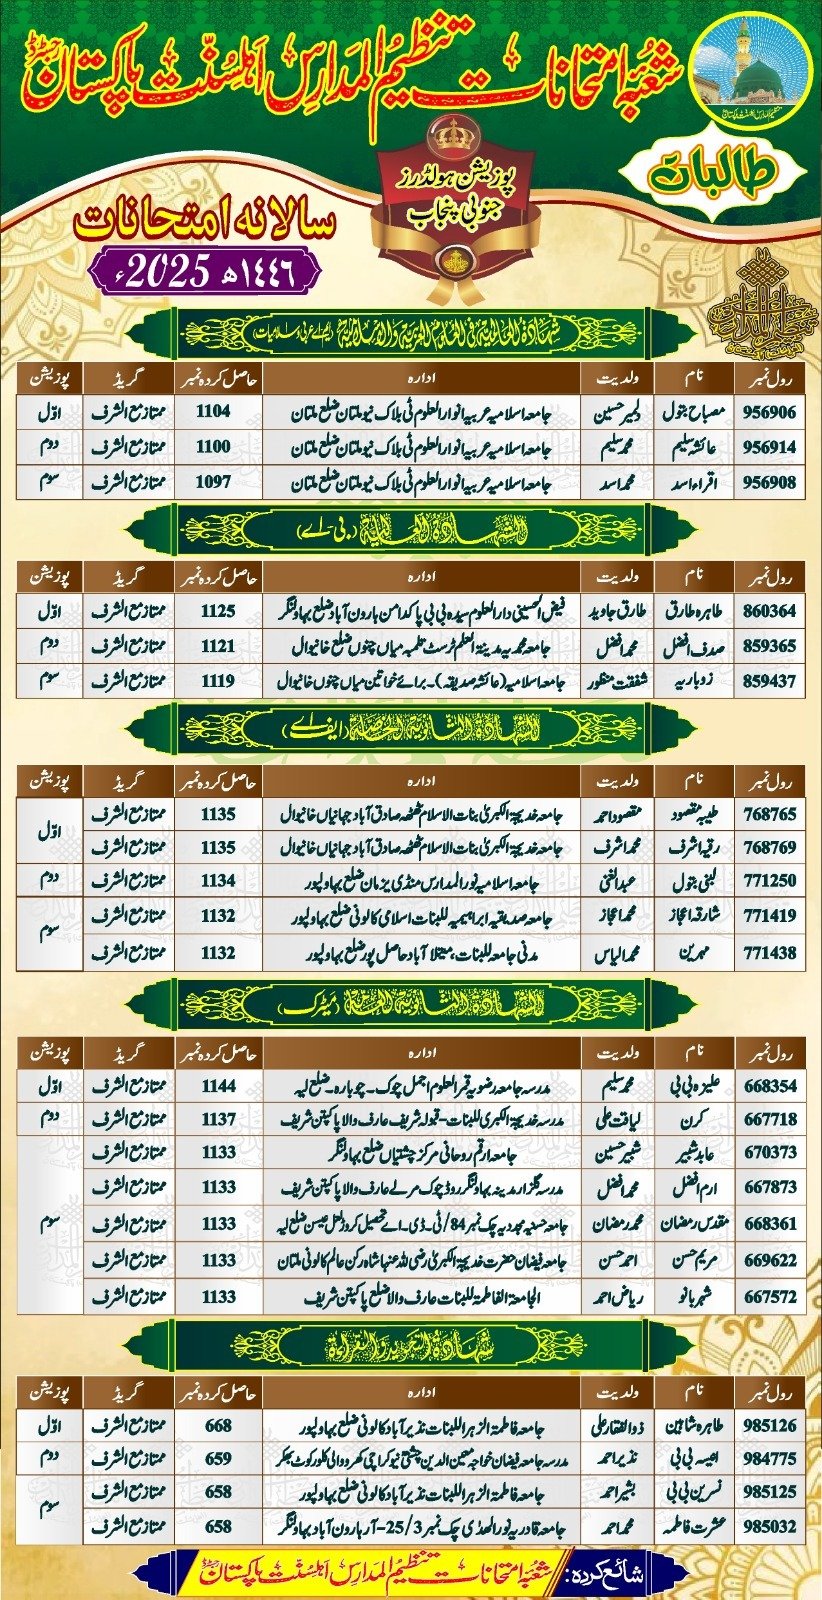 شعبہ امتحانات تنظیم المدارس اہلسنّت پاکستان رجسٹرڈ
تنظیم المدارس اہلسنت پاکستان
طالبات
پوزیشن ہولڈرز
جنوبی پنجاب
سالانہ امتحانات
۱۴۴۶ھ 2025ء
شہادۃ العالمیۃ فی العلوم العربیۃ والاسلامیۃ (ایم اے عربی و اسلامیات)
رول نمبر نام ولدیت ادارہ حاصل کردہ نمبر گریڈ پوزیشن
956906 مصباح بتول حسین جامعہ اسلامیہ عربیہ انوارالعلوم ٹی بلاک نیو ملتان ضلع ملتان 1104 ممتاز مع الشرف اوّل
956914 عائشہ سلیم محمد سلیم جامعہ اسلامیہ عربیہ انوارالعلوم ٹی بلاک نیو ملتان ضلع ملتان 1100 ممتاز مع الشرف دوم
956908 اقراء اسد محمد اسد جامعہ اسلامیہ عربیہ انوارالعلوم ٹی بلاک نیو ملتان ضلع ملتان 1097 ممتاز مع الشرف سوم
الشہادۃ العالیۃ (بی۔اے)
رول نمبر نام ولدیت ادارہ حاصل کردہ نمبر گریڈ پوزیشن
860364 طاہرہ طارق طارق جاوید فیض الحسینی دارالعلوم سیدہ بی بی پاکدامن ہارون آباد ضلع بہاولنگر 1125 ممتاز مع الشرف اوّل
859365 صدف افضل محمد افضل جامعہ محمدیہ مدینۃ العلم ٹرسٹ تلمبہ میاں چنوں ضلع خانیوال 1121 ممتاز مع الشرف دوم
859437 زوباریہ شفقت منظور جامعہ اسلامیہ (عائشہ صدیقہ)۔ برائے خواتین میاں چنوں خانیوال 1119 ممتاز مع الشرف سوم
الشہادۃ الثانویۃ الخاصۃ (ایف اے)
رول نمبر نام ولدیت ادارہ حاصل کردہ نمبر گریڈ پوزیشن
768765 طیبہ مقصود مقصود احمد جامعہ خدیجۃ الکبریٰ بنات الاسلام ٹھٹھہ صادق آباد جہانیاں خانیوال 1135 ممتاز مع الشرف اوّل
768769 رقیہ اشرف محمد اشرف جامعہ خدیجۃ الکبریٰ بنات الاسلام ٹھٹھہ صادق آباد جہانیاں خانیوال 1135 ممتاز مع الشرف
771250 لبنیٰ بتول عبدالغنی جامعہ اسلامیہ نورالمدارس منڈی یزمان ضلع بہاولپور 1134 ممتاز مع الشرف دوم
771419 شارقہ اعجاز محمد اعجاز جامعہ صدیقیہ ابراہیمیہ للبنات اسلامی کالونی ضلع بہاولپور 1132 ممتاز مع الشرف سوم
771438 مہرین محمد الیاس مدنی جامعہ للبنات، میتلا آباد حاصل پور ضلع بہاولپور 1132 ممتاز مع الشرف
الشہادۃ الثانویۃ العامۃ (میٹرک)
رول نمبر نام ولدیت ادارہ حاصل کردہ نمبر گریڈ پوزیشن
668354 علیزہ بی بی محمد سلیم مدرسہ جامعہ رضویہ قمرالعلوم اجمل چوک۔ چوبارہ۔ ضلع لیہ 1144 ممتاز مع الشرف اوّل
667718 کرن لیاقت علی مدرسہ خدیجۃ الکبریٰ للبنات۔ قبولہ شریف عارف والا پاکپتن شریف 1137 ممتاز مع الشرف دوم
670373 عابد شبیر شبیر حسین جامعہ ارقم روحانی مرکز چشتیاں ضلع بہاولنگر 1133 ممتاز مع الشرف سوم
667873 ارم افضل محمد افضل مدرسہ گلزار مدینہ بہاولنگر روڈ چوک مرلے عارف والا پاکپتن شریف 1133 ممتاز مع الشرف
668361 مقدس رمضان محمد رمضان جامعہ حسنیہ مجددیہ چک نمبر 84/ٹی۔ڈی۔اے تحصیل کروڑ لعل عیسن ضلع لیہ 1133 ممتاز مع الشرف
669622 مریم حسن احمد حسن جامعہ فیضان حضرت خدیجۃ الکبریٰ رضی اللہ عنہا شاہ رکن عالم کالونی ملتان 1133 ممتاز مع الشرف
667572 شہر بانو ریاض احمد الجامعۃ الفاطمۃ للبنات عارف والا ضلع پاکپتن شریف 1133 ممتاز مع الشرف
شہادۃ التجوید والقراءۃ
رول نمبر نام ولدیت ادارہ حاصل کردہ نمبر گریڈ پوزیشن
985126 طاہرہ شاہین ذوالفقار علی جامعہ فاطمۃ الزہرا للبنات نذیر آباد کالونی ضلع بہاولپور 668 ممتاز مع الشرف اوّل
984775 انیسہ بی بی نذیر احمد مدرسہ جامعہ فیضان خواجہ معین الدین چشتی نیو کراچی کھرو والی کلور کوٹ بھکر 659 ممتاز مع الشرف دوم
985125 نسرین بی بی بشیر احمد جامعہ فاطمۃ الزہرا للبنات نذیر آباد کالونی ضلع بہاولپور 658 ممتاز مع الشرف سوم
985032 عشرت فاطمہ محمد احمد جامعہ قادریہ نورالھدیٰ چک نمبر 25/3-آر ہارون آباد بہاولنگر 658 ممتاز مع الشرف
شائع کردہ: شعبہ امتحانات تنظیم المدارس اہلسنّت پاکستان رجسٹرڈ